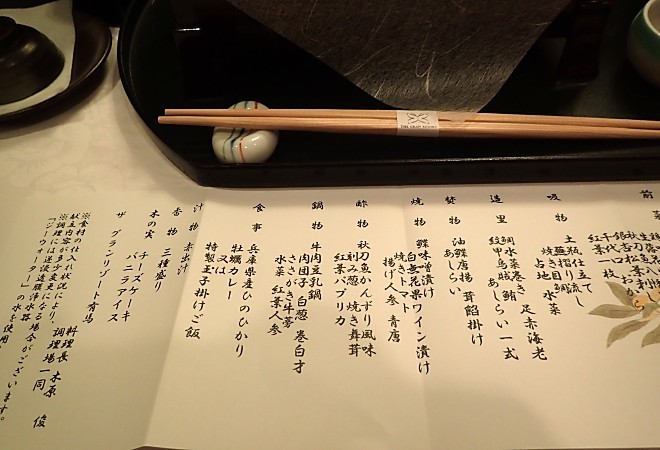 THE GRAN RESORT
前
吸 物
土瓶仕立て
蕪摺り流し
焼き目鯛
焼き占地 水菜
造 里
足赤海老
鯛水菜巻き 鮪
紋甲烏賊
あしらい一式
甘鯛唐揚 茸餡掛け
あしらい
焼 物
鰈味噌漬け
白無花果ワイン漬け
焼きトマト
揚げ人参 青唐
酢 物
秋刀魚かんずり風味
刻み葱 焼き舞茸
紅葉パプリカ
鍋 物
牛肉豆乳鍋
肉団子 白葱 巻白才
ささがき牛蒡
水菜 紅葉人参
食 事
兵庫県産ひのひかり
牡蠣カレー
又は
特製玉子掛けご飯
汁 物 赤出汁
香 物 三種盛り
木の実
チーズケーキ
バニラアイス
ザ グランリゾート有馬
料理長 木原 俊
調理場一同
※食材の仕入れ状況により、
献立内容が多少変更になる場合がございます。
※調理には逆浸透膜浄水器
「ジーウォーター」の水を使用